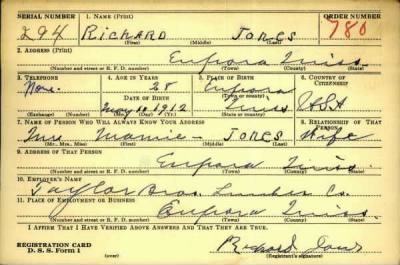 SERIAL NUMBER 1. NAME (Print) ORDER NUMBER
294 RICHARD JONES 780
(First) (Middle) (Last)
2. ADDRESS (Print)
Eupora Miss.
(Number and street or R. F. D. number) (Town) (County) (State)
3. TELEPHONE 4. AGE IN YEARS 5. PLACE OF BIRTH 6. COUNTRY OF CITIZENSHIP
None. 28 Eupora
DATE OF BIRTH (Town or county)
May 10 1912 Miss USA
(Exchange) (Number) (Mo.) (Day) (Yr.) (State or country)
7. NAME OF PERSON WHO WILL ALWAYS KNOW YOUR ADDRESS 8. RELATIONSHIP OF THAT PERSON
Mrs Mamie - JONES Wife
(Mr., Mrs., Miss) (First) (Middle) (Last)
9. ADDRESS OF THAT PERSON
Eupora Miss.
(Number and street or R. F. D. number) (Town) (County) (State)
10. EMPLOYER'S NAME
Taylor Bros. Lumber Co.
11. PLACE OF EMPLOYMENT OR BUSINESS
Eupora Miss.
(Number and street or R. F. D. number) (Town) (County) (State)
I AFFIRM THAT I HAVE VERIFIED ABOVE ANSWERS AND THAT THEY ARE TRUE.
REGISTRATION CARD
D. S. S. Form 1 (over) Richard Jones
(Registrant's signature)